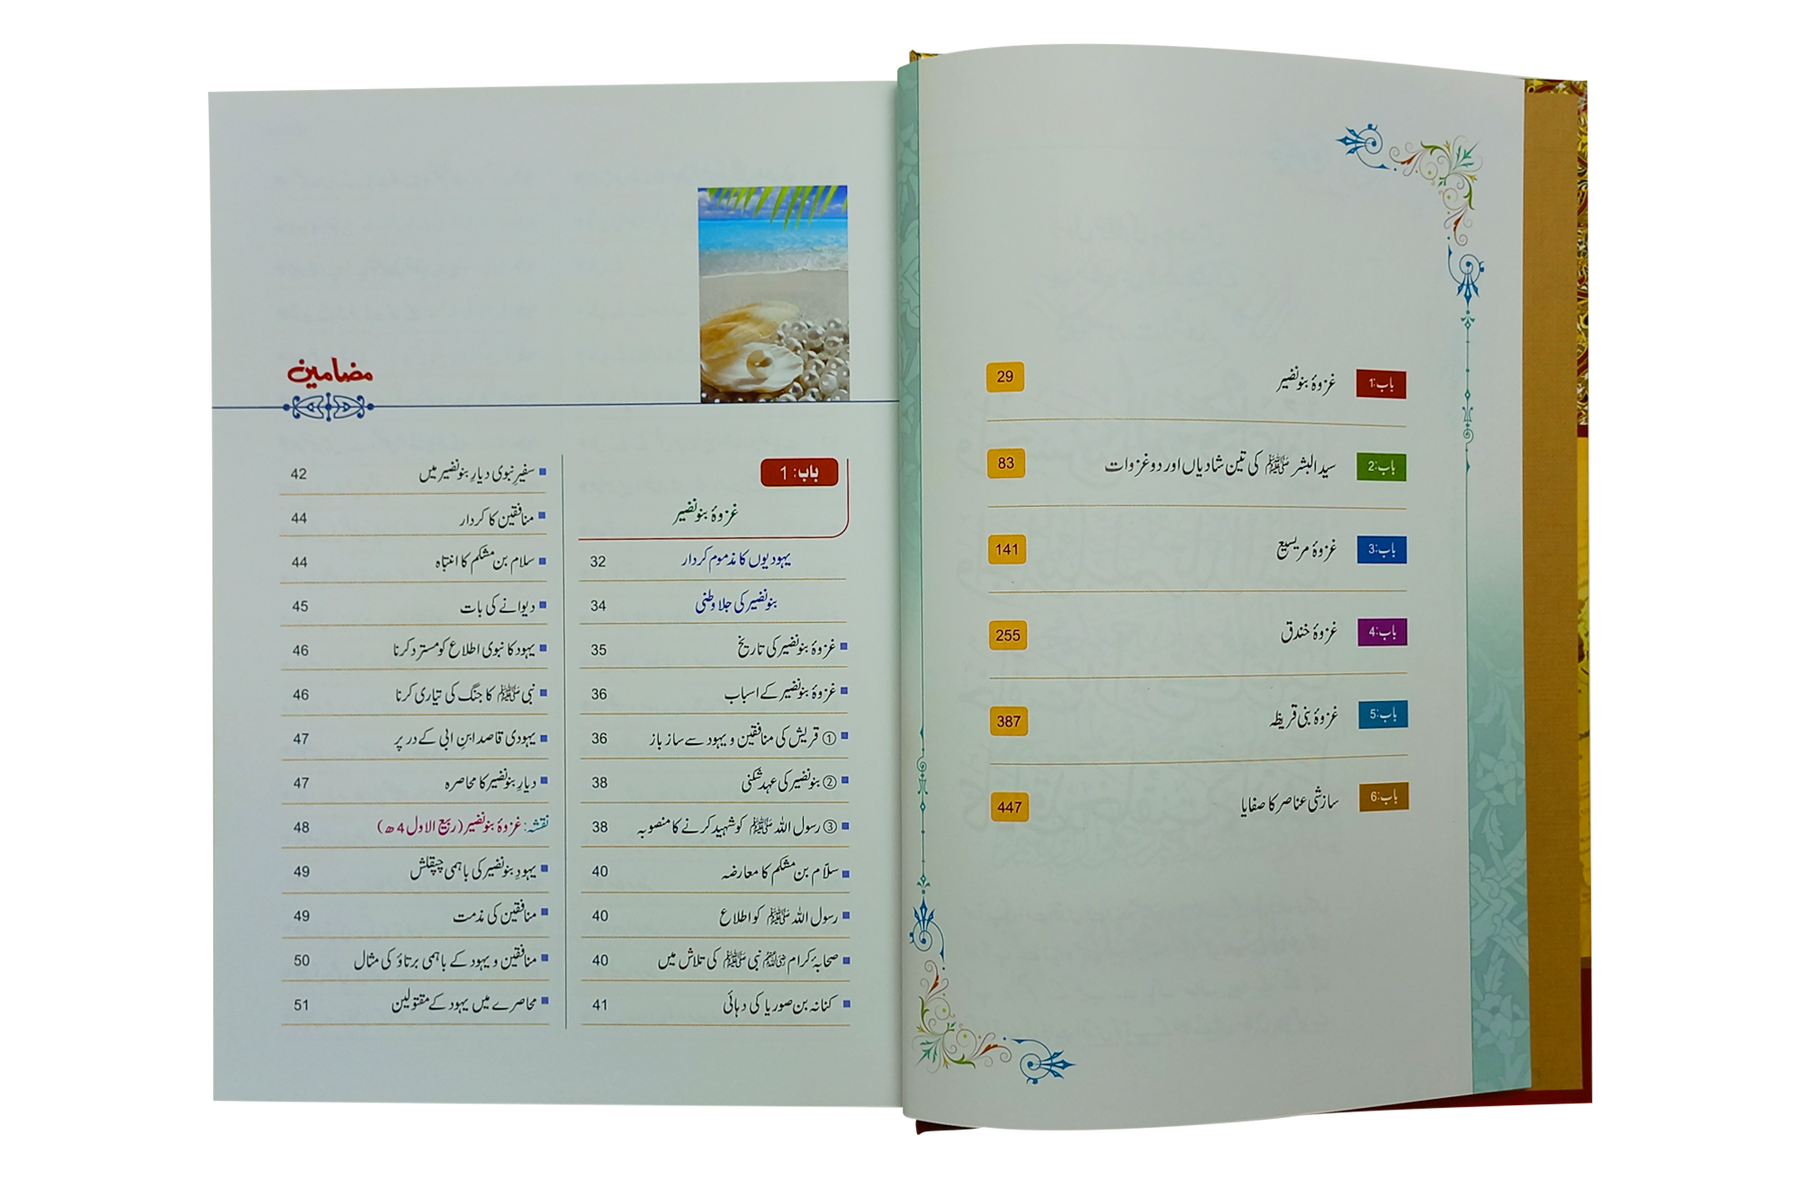 باب:1 غزوۂ بنو نضیر 29
باب:2 سید البشر ﷺ کی تین شادیاں اور دو غزوات 83
باب:3 غزوۂ مریسیع 141
باب:4 غزوۂ خندق 255
باب:5 غزوۂ بنی قریظہ 387
باب:6 سازشی عناصر کا صفایا 447
مضامین
باب: 1
غزوۂ بنو نضیر
یہودیوں کا مذموم کردار 32
بنو نضیر کی جلاوطنی 34
غزوۂ بنو نضیر کی تاریخ 35
غزوۂ بنو نضیر کے اسباب 36
① قریش کی منافقین و یہود سے ساز باز 36
② بنو نضیر کی عہد شکنی 38
③ رسول اللہ ﷺ کو شہید کرنے کا منصوبہ 38
سلّام بن مشکم کا معارضہ 40
رسول اللہ ﷺ کو اطلاع 40
صحابۂ کرام رضی اللہ عنہم نبی ﷺ کی تلاش میں 40
کنانہ بن صوریا کی دہائی 41
سفیرِ نبوی دیارِ بنو نضیر میں 42
منافقین کا کردار 44
سلام بن مشکم کا انتباہ 44
دیوانے کی بات 45
یہود کا نبوی اطلاع کو مسترد کرنا 46
نبی ﷺ کا جنگ کی تیاری کرنا 46
یہودی قاصد ابنِ ابی کے در پر 47
دیارِ بنو نضیر کا محاصرہ 47
نقشہ: غزوۂ بنو نضیر (ربیع الاول 4ھ) 48
یہودِ بنو نضیر کی باہمی چپقلش 49
منافقین کی مذمت 49
منافقین و یہود کے باہمی برتاؤ کی مثال 50
محاصرے میں یہود کے مقتولین 51